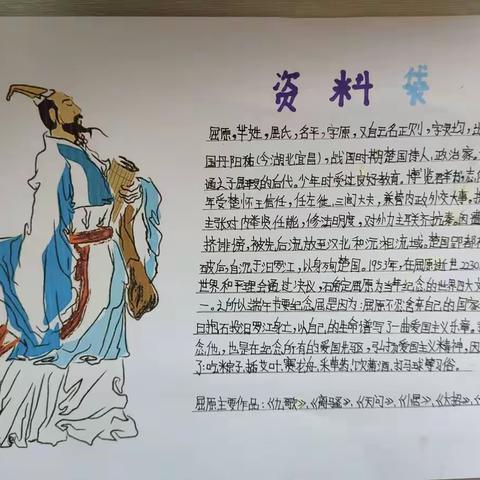 资料袋
屈原,芈姓,屈氏,名平,字原,又自云名正则,字灵均,出
国丹阳秭(今湖北宜昌),战国时期楚国诗人、政治家。
通之子屈瑕的后代。少年时受过良好教育。博览群书,志
年受楚怀王信任,任左徒、三闾大夫,兼管内政外交大事。提
主张对内举贤任能,修法明度,对外力主联齐抗秦。因遭
挤诽谤,被先后流放至汉北和沅湘流域。楚国郢都
破后,自沉于汨罗江,以身殉楚国。1953年,在屈原逝世2230
世界和平理会通过决议,确定屈原为当年纪念的世界四大文
一。之所以端午节要纪念屈是因为:屈原不忍舍弃自己的国家
日抱石投汨罗江身亡,以自己的生命谱写了一曲爱国主义乐章。
念他,也是在纪念所有的爱国先驱,弘扬爱国主义精神,因
了:吃粽子、插艾叶、赛龙舟、采草药、饮黄酒、打马球等习俗。
屈原主要作品:《九歌》、《离骚》、《天问》、《卜居》、《大招》、